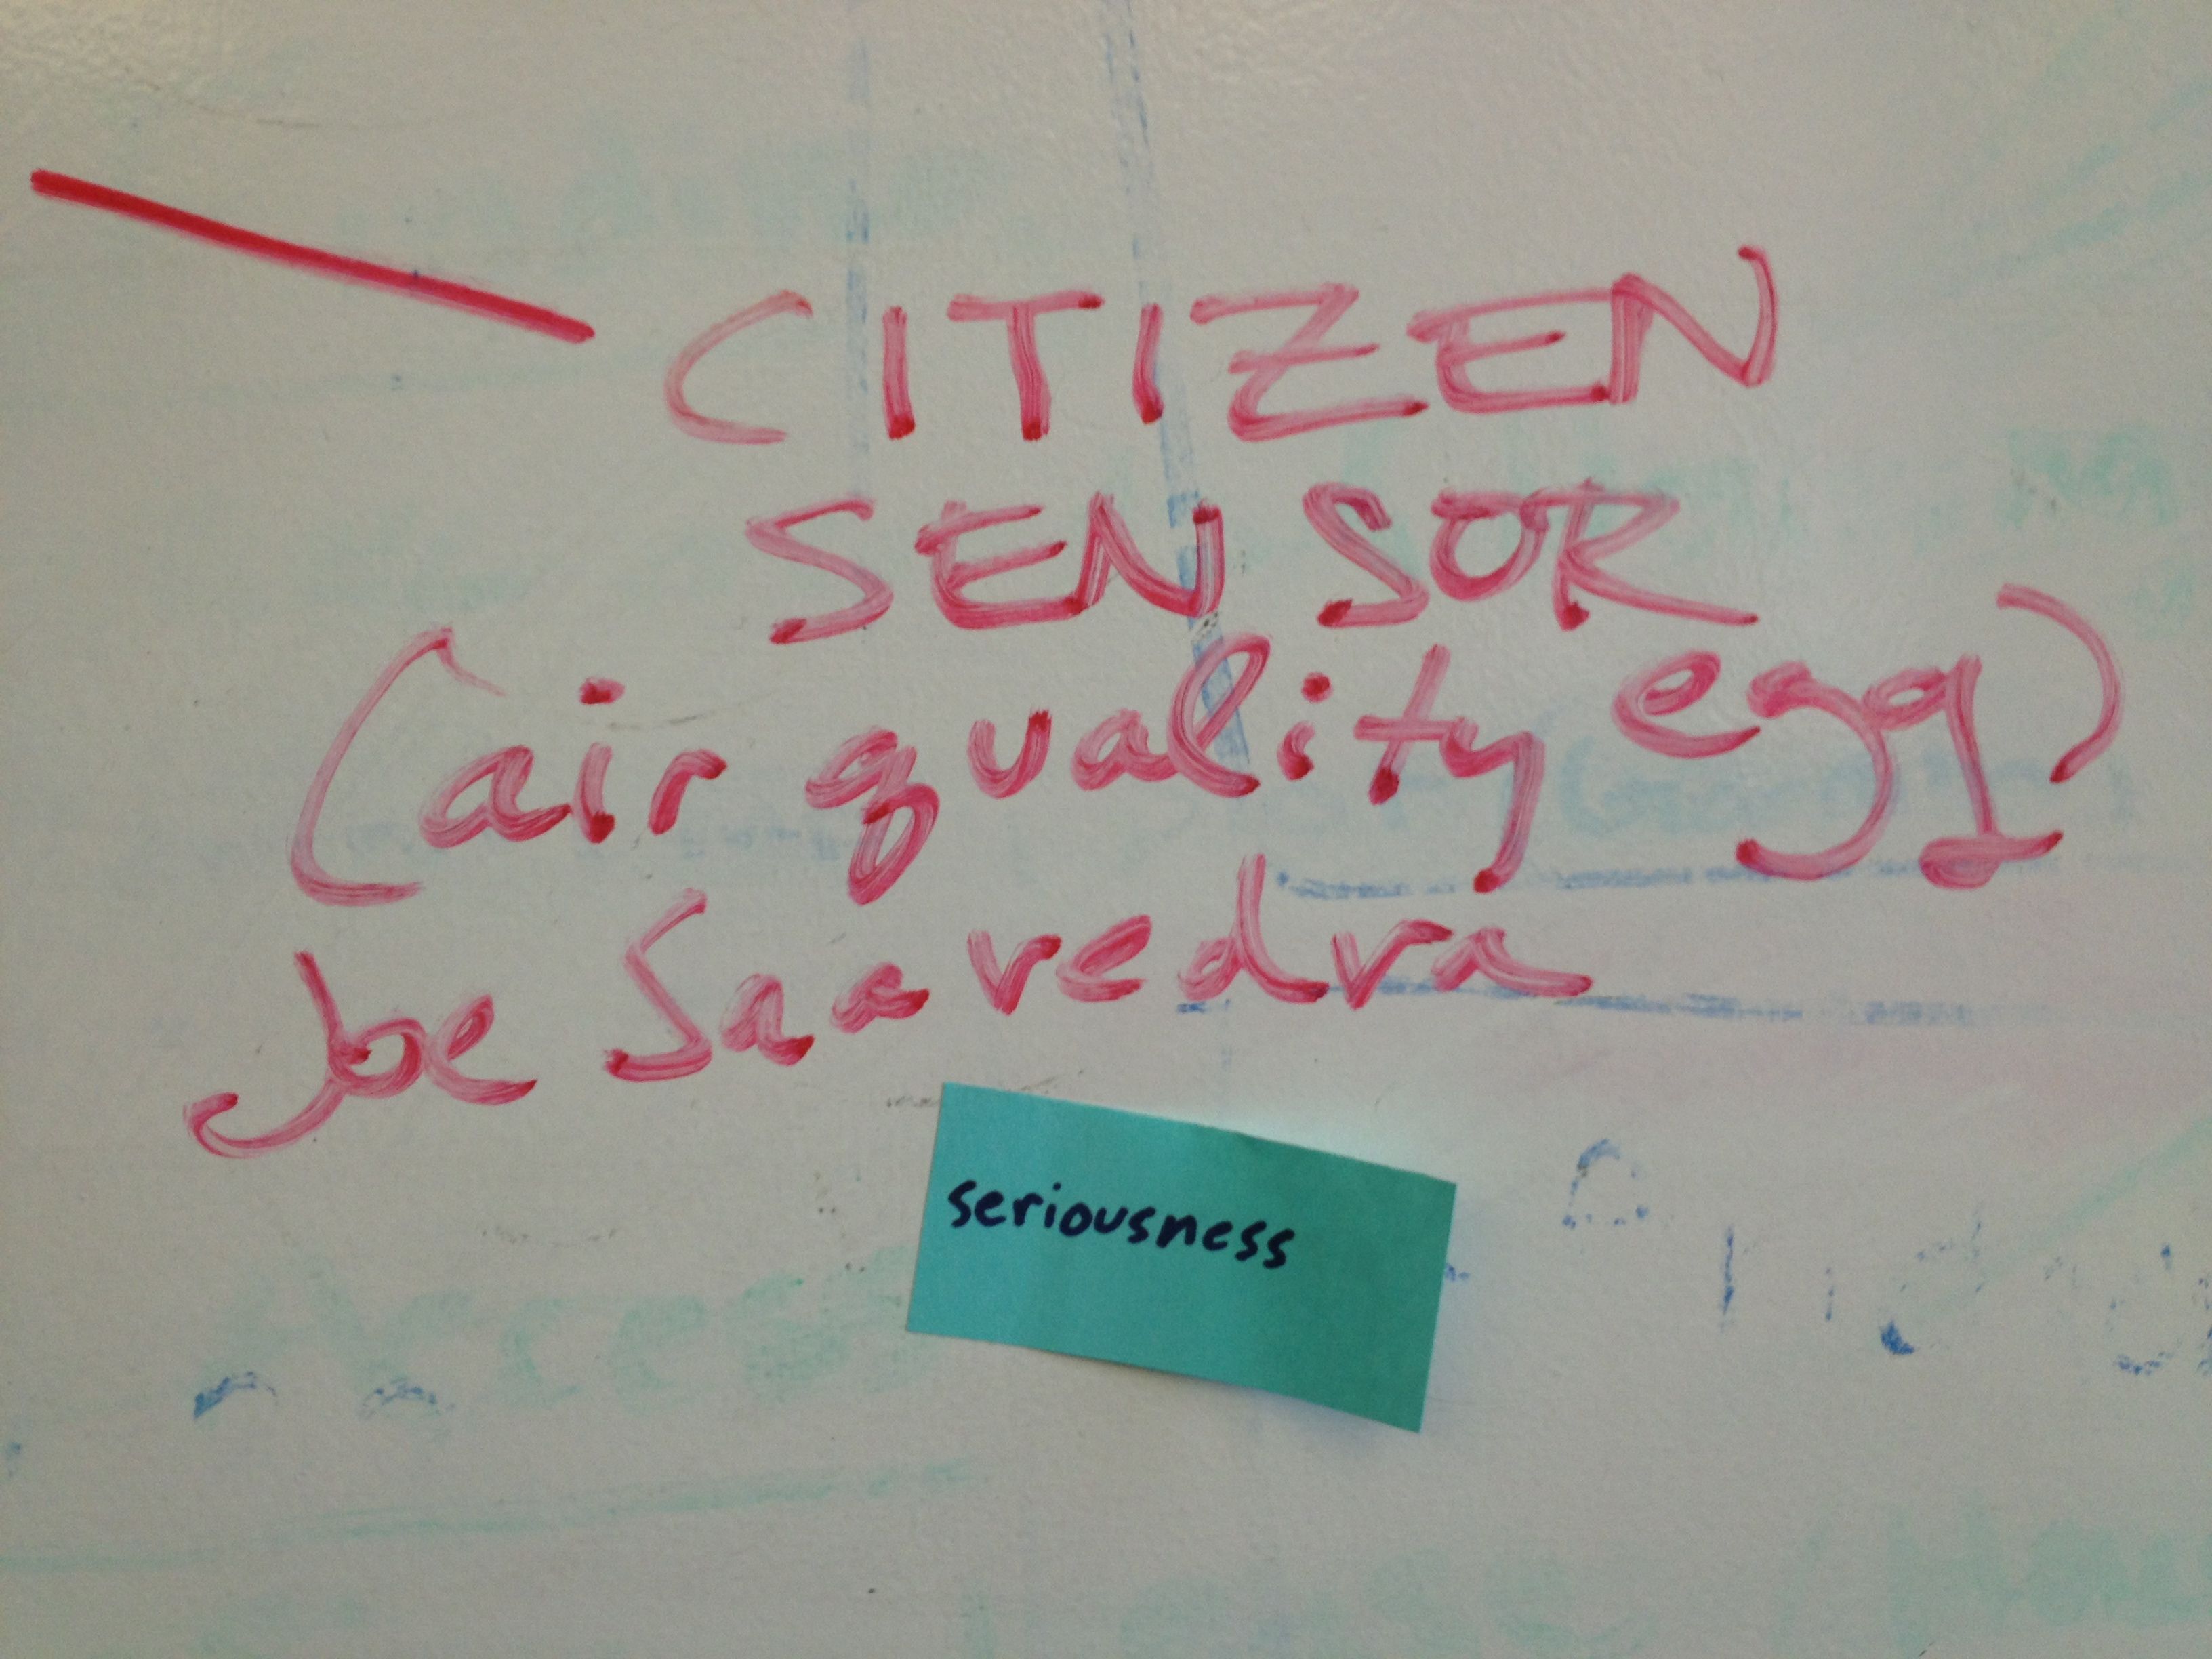 CITIZEN
SENSOR
(air quality egg)
Joe Saavedra
seriousness